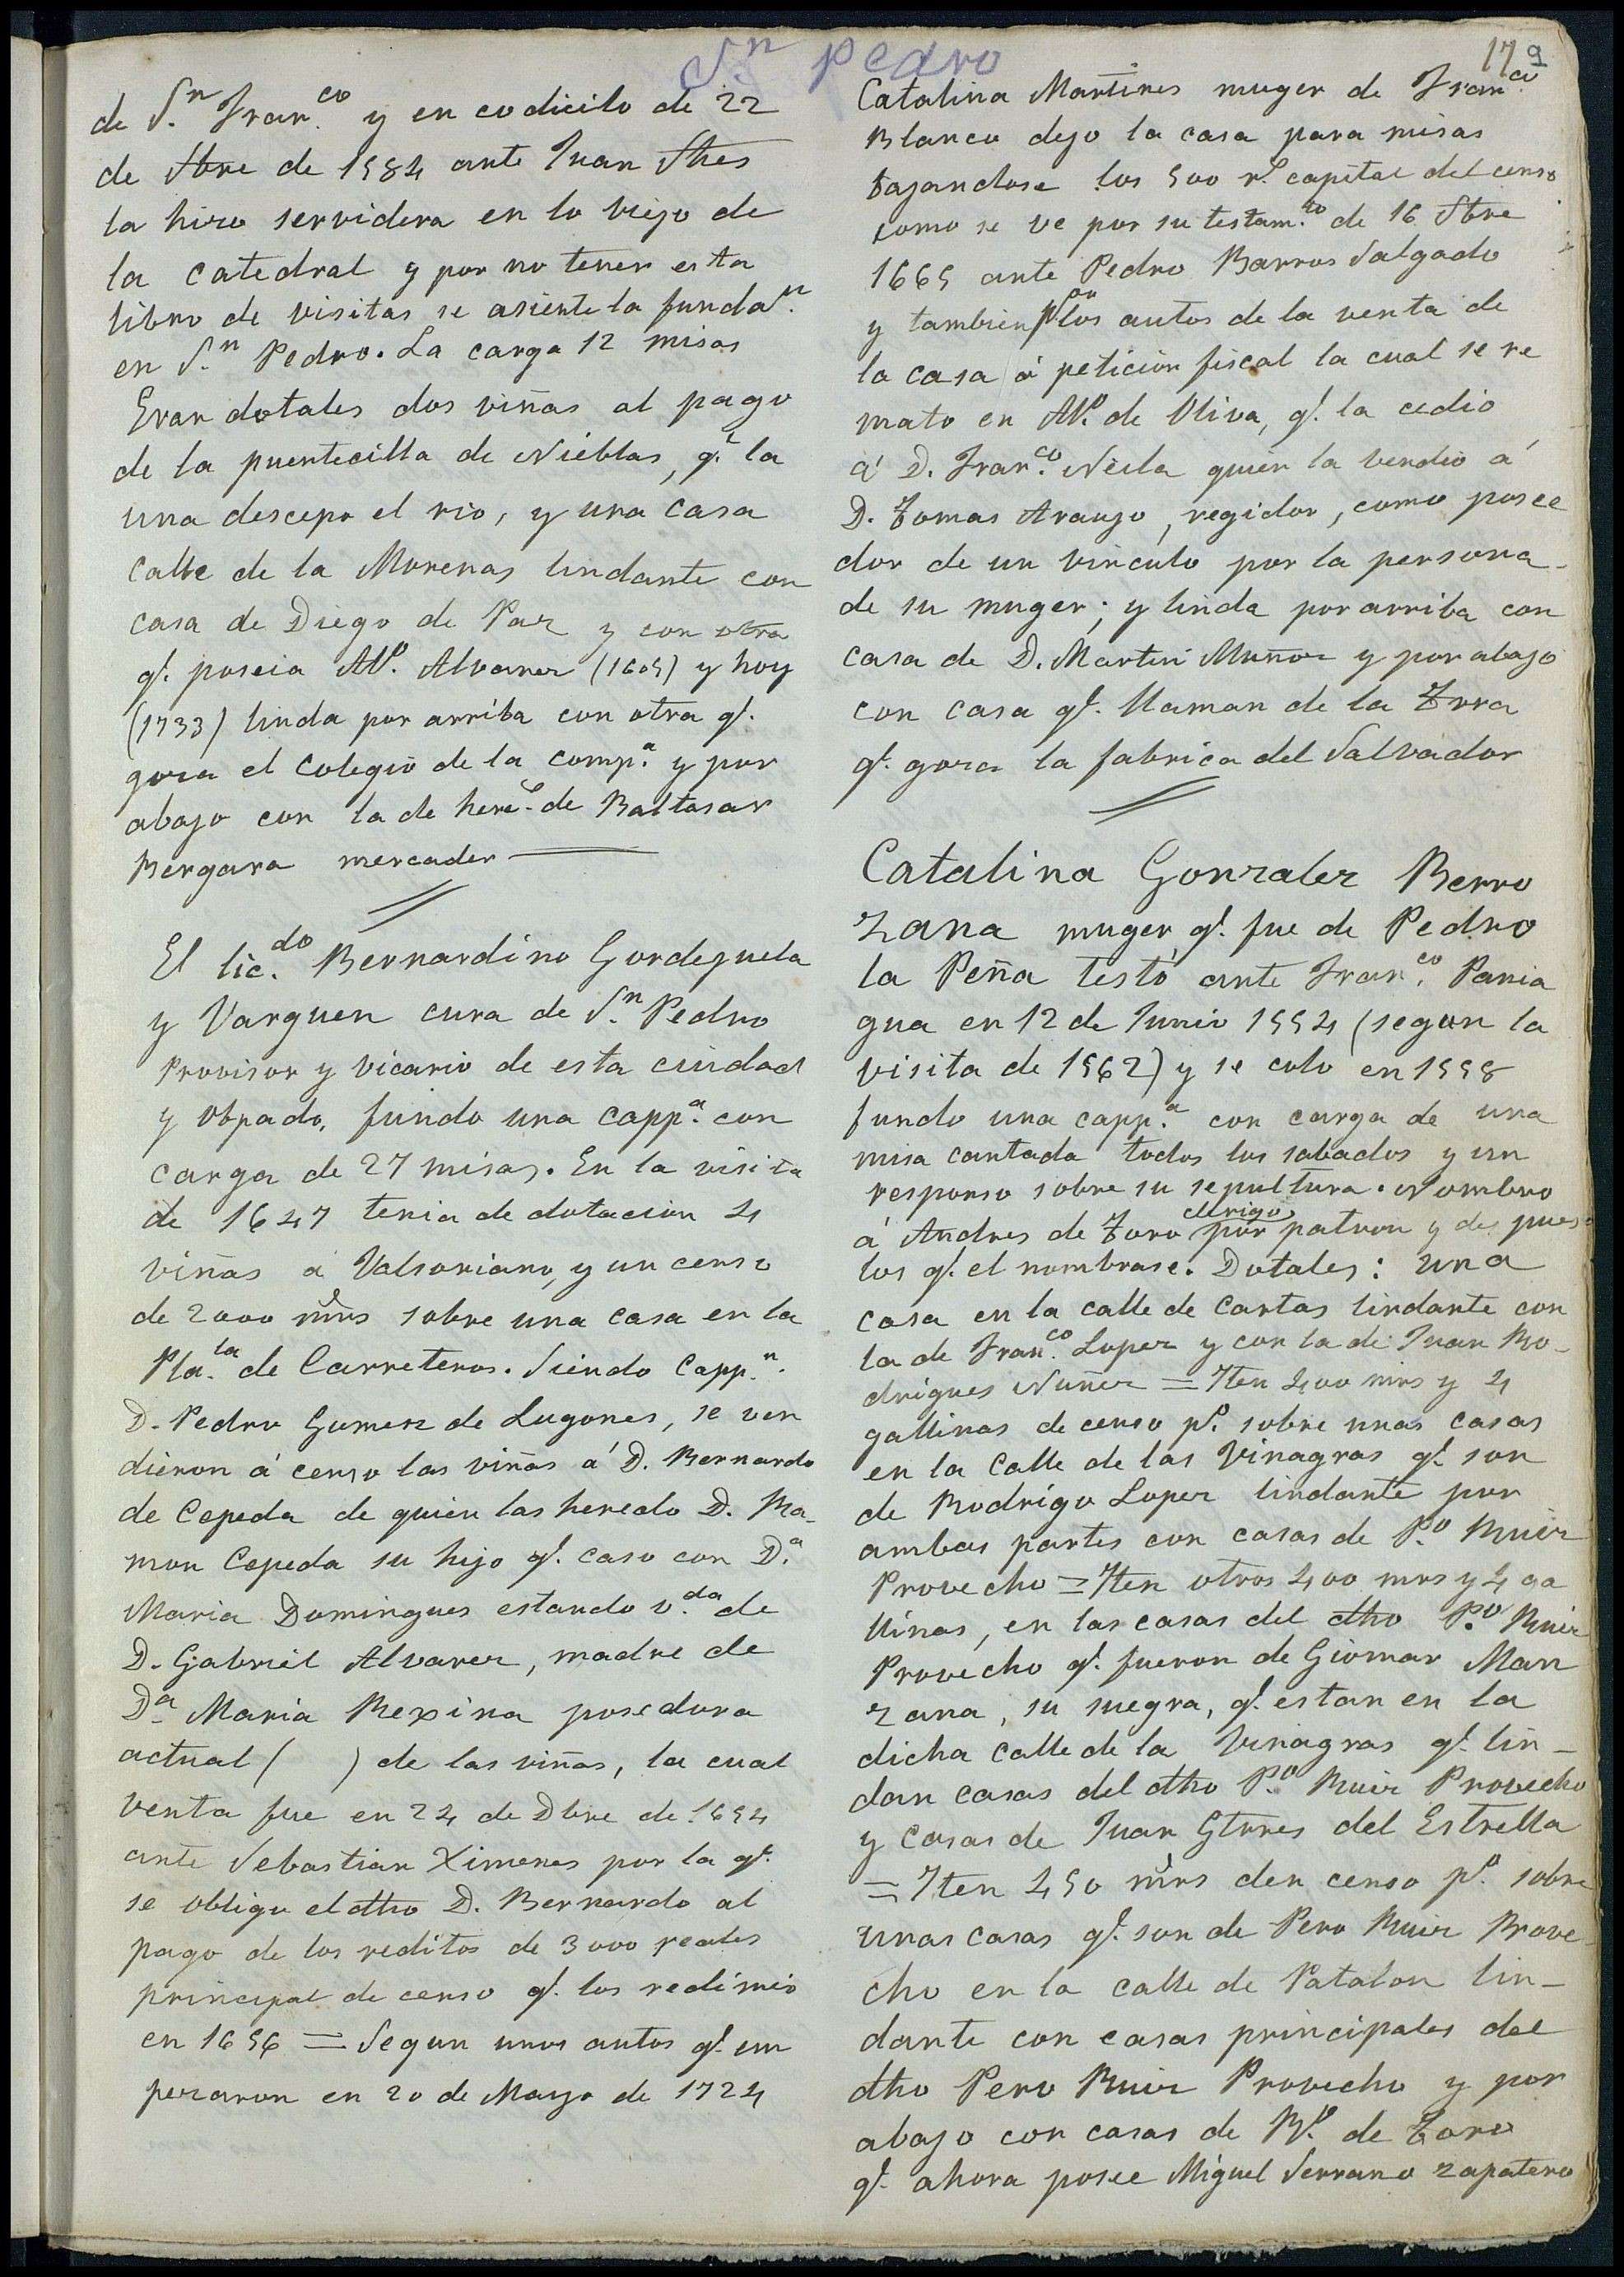 Sn Pedro
179
de Sn. Franco. y en codicilo de 22
de Sbre de 1584 ante Juan Shes
la hizo servidera en lo viejo de
la catedral y por no tener esta
libro de visitas se asiente la fundan.
en Sn. Pedro. La carga 12 misas
Eran dotales dos viñas al pago
de la puentecilla de Nieblas, q. la
una descepo el rio, y una casa
calle de la Morenas lindante con
casa de Diego de Paz y con otra
q. poseia Alo. Alvarez (1605) y hoy
(1733) linda por arriba con otra q.
goza el colegio de la compa. y por
abajo con la de heres. de Baltasar
Bergara mercader

El licdo. Bernardino Gordejuela
y Varguen cura de Sn. Pedro
Provisor y vicario de esta ciudad
y obpado, fundo una cappa. con
carga de 27 misas. En la visita
de 1647 tenia de dotacion 4
viñas a Valsoriano, y un censo
de 2000 mrs sobre una casa en la
Plata. de Carreteros. Siendo Cappn.
D. Pedro Gomez de Lugones, se ven
dieron á censo las viñas á D. Bernardo
de Cepeda de quien las heredo D. Ra-
mon Cepeda su hijo q. caso con Da.
Maria Domingues estando vda. de
D. Gabriel Alvarez, madre de
Da Maria Rexina posedora
actual ( ) de las viñas, la cual
venta fue en 24 de Dbre de 1654
ante Sebastian Ximenes por la q.
se obligo el dho D. Bernardo al
pago de los reditos de 3000 reales
principal de censo q. los redimio
en 1656 = Segun unos autos q. em
pezaron en 20 de Mayo de 1724
Catalina Martines muger de Franco.
Blanco dejo la casa para misas
bajandose los 500 rs. capital del censo
como se ve por su testamto. de 16 Sbre
1665 ante Pedro Barros Salgado
y tambien por los autos de la venta de
la casa á peticion fiscal la cual se re
mato en Alo. de Oliva, q. la cedio
á D. Franco. Neila quien la vendio á
D. Tomas Araujo, regidor, como posee
dor de un vinculo por la persona
de su muger; y linda por arriba con
casa de D. Martin Muñoz y por abajo
con casa q. llaman de la Trra
q. goza la fabrica del Salvador

Catalina Gonzalez Berro
zana muger q. fue de Pedro
la Peña testó ante Franco. Pania
gua en 12 de Junio 1554 (segun la
visita de 1562) y se colo en 1558
fundo una cappa. con carga de una
misa cantada todos los sabados y un
responso sobre su sepultura. Nombro
á Andres de Toro clerigo por patron y despues
los q. el nombrase. Dotales: una
casa en la calle de Cartas lindante con
la de Franco. Lopez y con la de Juan Ro-
drigues Nuñez = Iten 400 mrs y 4
gallinas de censo po. sobre unas casas
en la Calle de las Vinagras q. son
de Rodrigo Lopez lindante por
ambas partes con casas de Po. Ruiz
Provecho = Iten otros 400 mrs y 4 ga
llinas, en las casas del dho Po. Ruiz
Provecho q. fueron de Giomar Man
zana, su suegra, q. estan en la
dicha calle de la Vinagras q. lin-
dan casas del dho Po. Ruiz Provecho
y casas de Juan Gtrres del Estrella
= Iten 450 mrs den censo po. sobre
unas casas q. son de Pero Ruiz Prove
cho en la calle de Patalon lin-
dante con casas principales del
dho Pero Ruiz Provecho y por
abajo con casas de Ro. de Toro
q. ahora posee Miguel Serrano zapatero